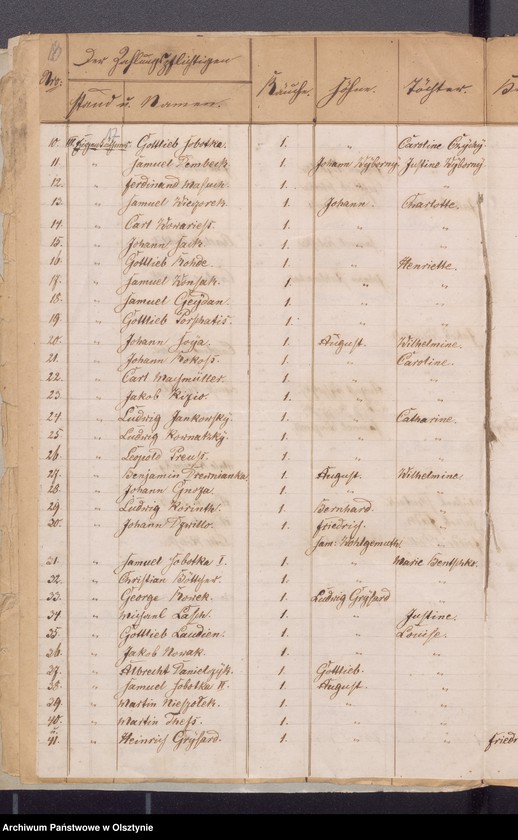 10
Der Zahlungspflichtigen
Nro: Stand u. Namen. Räuche. Söhne. Töchter.
10. Gottlieb Sobotka. 1. " Caroline Czyhÿ
11. " Samuel Dembeck. 1. Johann Wÿborny. Justine Wÿborny
12. " Ferdinand 1. " "
13. " Samuel Wieczorek. 1. Johann. Charlotte.
14. " Carl 1. " "
15. " Johann Jack. 1. " "
16. " Gottlieb Rohde. 1. " Henriette.
17. " Samuel Wonsak. 1. " "
18. " Samuel Geydan. 1. " "
19. " Gottlieb 1. " "
20. " Johann Soja. 1. August. Wilhelmine.
21. " Johann Kokoss. 1. " Caroline.
22. " Carl 1. " "
23. " Jakob Kizio. 1. " "
24. " Ludwig Jankowskÿ. 1. " Catharine.
25. " Ludwig Kownatzkÿ. 1. " "
26. " Leopold Preuss. 1. " "
27. " Benjamin Drewnianka. 1. August. Wilhelmine.
28. " Johann 1. " "
29. " Ludwig Korinth. 1. Bernhard. "
30. " Johann Dzwillo. 1. Friedrich. "
Sam: Wohlgemuth.
31. " Samuel Sobotka I. 1. " Marie Bentschko.
32. " Christian 1. " "
33. " George Kowek. 1. Ludwig Grÿsard "
34. " Michael Lasch. 1. " Justine.
35. " Gottlieb Laudien. 1. " Louise.
36. " Jakob Nowak. 1. " "
37. " Albrecht Danielczÿk. 1. Gottlieb. "
38. " Samuel Sobotka II. 1. August. "
39. " Martin 1. " "
40. " Martin Thess. 1. " "
41. " Heinrich Grÿsard. 1. " " Friedr
Archiwum Państwowe w Olsztynie